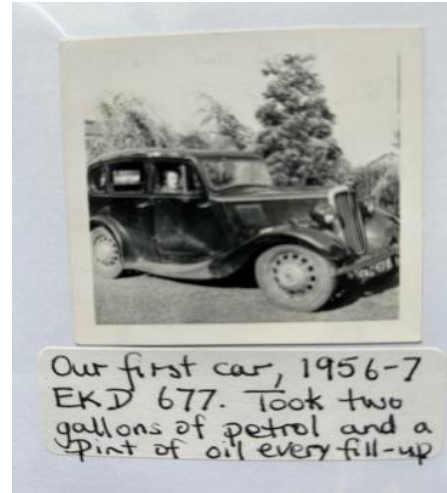 Our first car, 1956-7
EKD 677. Took two
gallons of petrol and a
pint of oil every fill-up